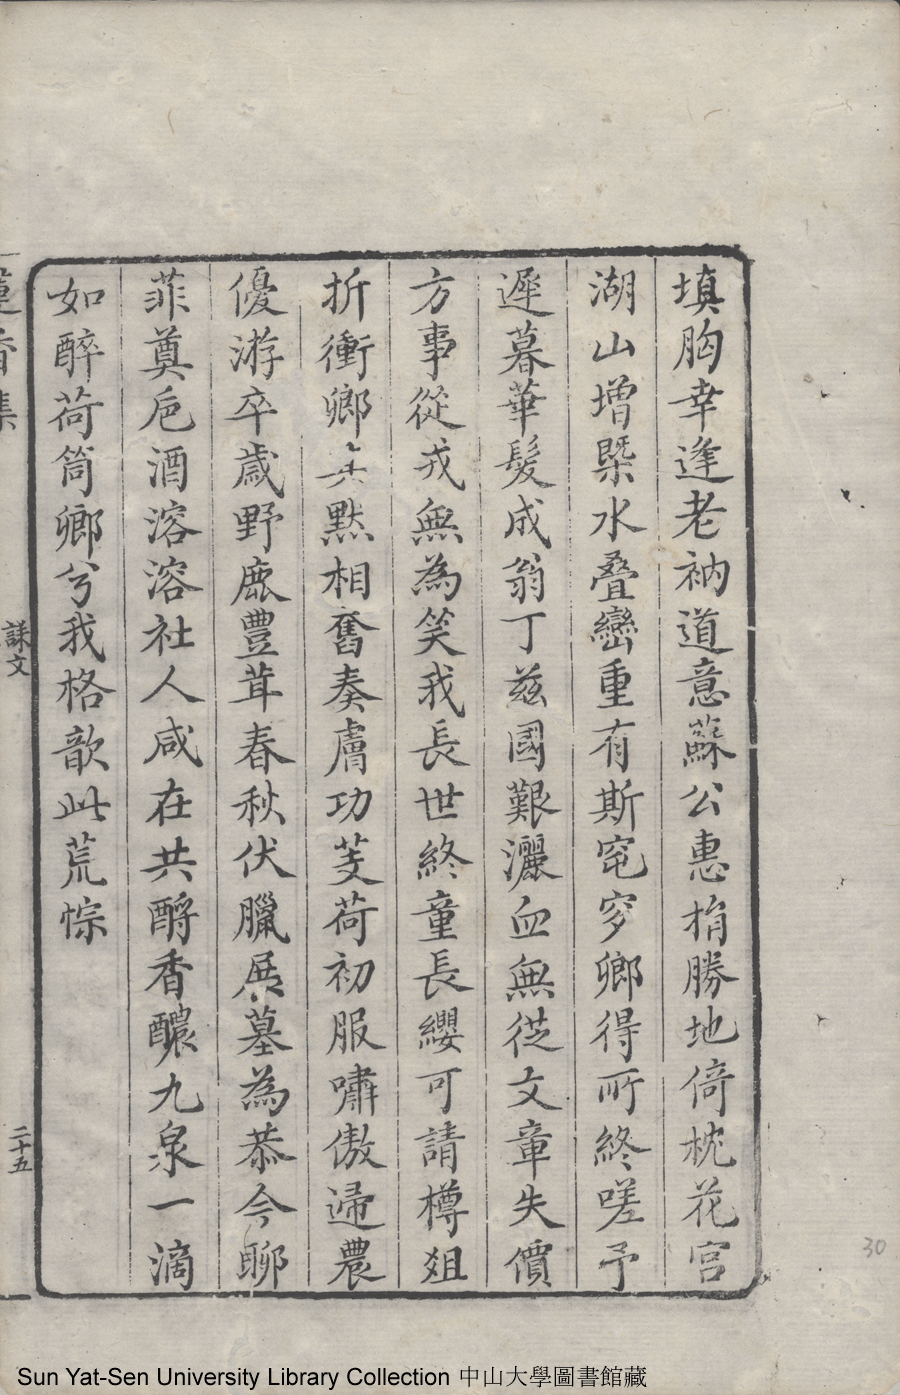 填胸幸逢老衲道意蘇公惠捐勝地倚枕花宮
湖山增槩水疊巒重有斯窀穸卿得所終嗟予
遲暮華髮成翁丁兹國艱灑血無從文章失價
方事從戎無為笑我長世終童長纓可請樽俎
折衝卿默相舊奏膚功芰荷初服嘯傲歸農
優游卒歲野鹿豐茸春秋伏臘展墓為恭今聊
菲奠巵酒溶溶社人咸在共酹香醲九泉一滴
如醉荷筒卿兮我格歆此荒悰
蓮香集
誄文
二十五
30
Sun Yat-Sen University Library Collection 中山大學圖書館藏